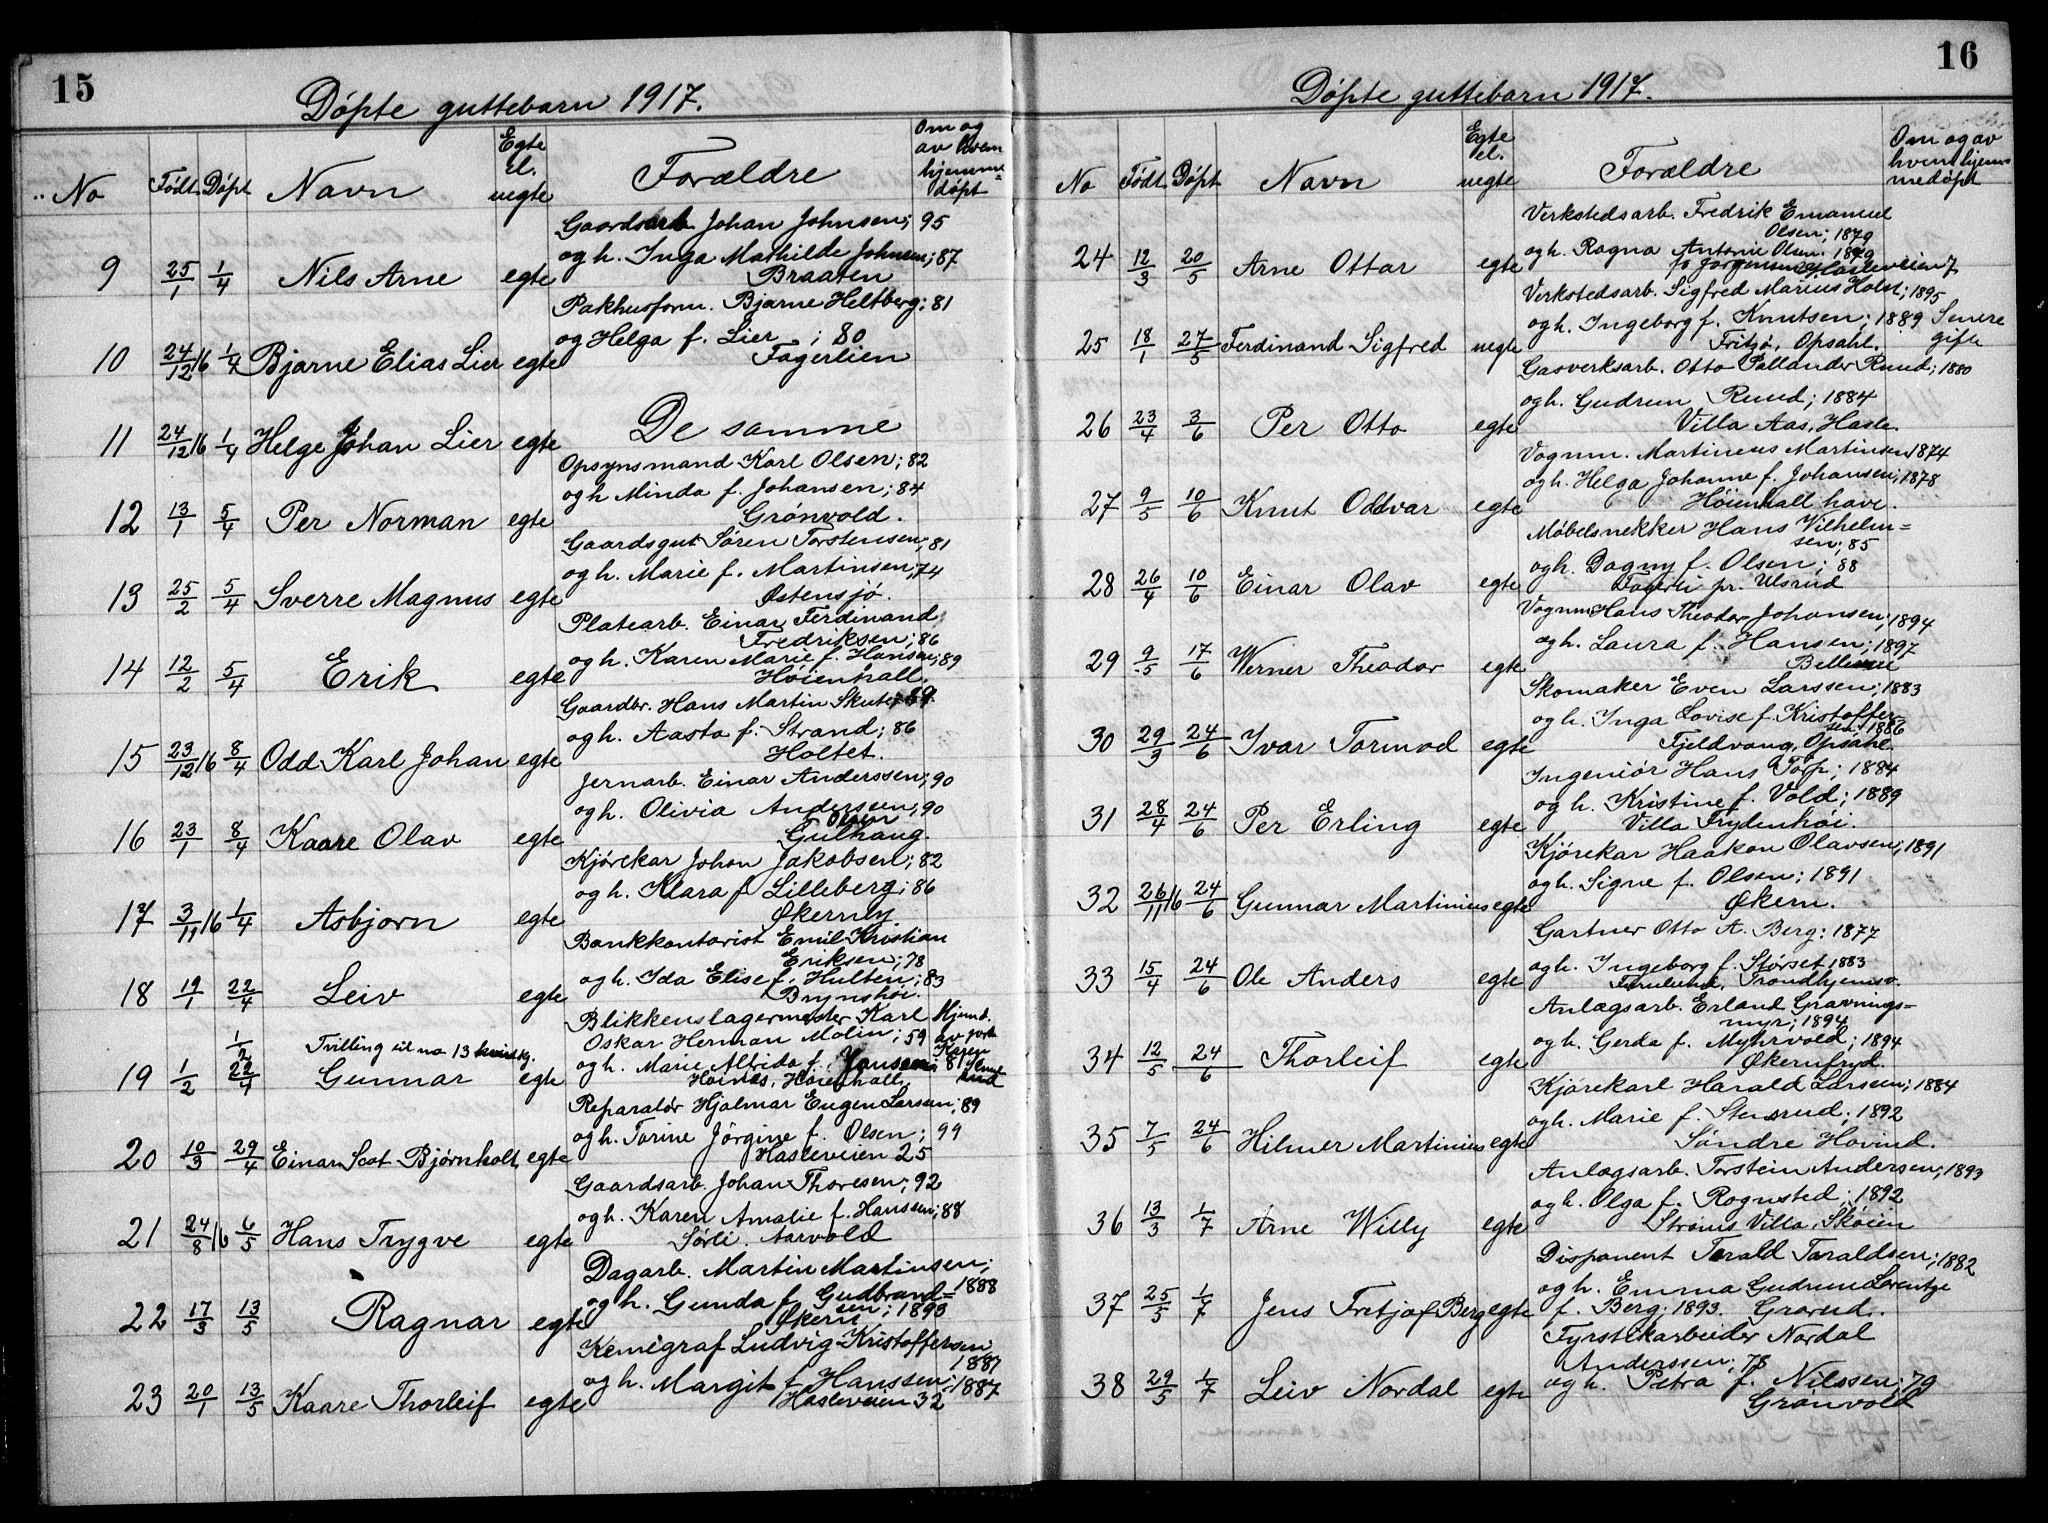 15
Döpte guttebarn 1917.
No Födt Döpt Navn Egte el. uegte Forældre Om og av hvem hjemme=döpt
Gaardsarb. Johan Johnsen; 95
og h. Inga Mathilde Johnsen; 87
9 25/1 1/4 Nils Arne egte Braaten
Pakhusform. Bjarne Heltberg; 81
og Helga f. Lier ; 80
10 24/12 16 1/4 Bjarne Elias Lier egte Fagerlien
11 24/12 16 1/4 Helge Johan Lier egte De samme
Opsynsmand Karl Olsen; 82
og h Minda f. Johansen; 84
12 13/1 5/4 Per Norman egte Grönvold.
Gaardsgut Sören Torstensen; 81
og h. Marie f. Martinsen; 74
13 25/2 5/4 Sverre Magnus egte Østensjö.
Platearb. Einar Ferdinand
Fredriksen; 86
og h. Karen Marie f. Hansen; 89
14 12/2 5/4 Erik egte Höienhall.
Gaardbr. Hans Martin Skute; 89.
og h. Aasta f. Strand; 86
15 23/12 16 8/4 Odd Karl Johan egte Holtet.
Jernarb. Einar Anderssen; 90
og h. Olivia Anderssen; 90
16 23/1 8/4 Kaare Olav egte Gulhaug.
Kjörekar Johan Jakobsen; 82
og h. Klara f Lilleberg; 86
17 3/11 16 1/4 Asbjorn egte Økernly.
Bankkontorist Emil Kristian
Eriksen; 78
og h. Ida Elise f. Hulten; 83
18 19/1 22/4 Leiv egte Brynshöi.
Blikkenslagermester Karl Hjemd.
Oskar Herman Molin; 59 av jord
Tvilling til no 13 kvindkj. 1/2
og h. Marie Alfrida f. Jansen; 81
19 1/2 22/4 Gunnar egte Höines, Höienhall.
Reparatör Hjalmar Eugen Larsen; 89
og h. Torine Jörgine f. Olsen; 99
20 10/3 29/4 Einar Scot Bjørnholt egte Hasleveien 25
Gaardsarb. Johan Thoresen; 92
og h. Karen Amalie f. Hanssen; 88
21 24/8 16 6/5 Hans Trygve egte Sörli. Aarvold
Dagarb. Martin Martinsen;
1888
og h. Gunda f. Gudbrand=
sen; 1893
22 17/3 13/5 Ragnar egte Økern
Kemigraf Ludvig Kristoffersen
1887
og h. Margit f Hanssen; 1887
23 20/1 13/5 Kaare Thorleif egte Hasleveien 32
16
Döpte guttebarn 1917.
No Födt Döpt Navn Egte el. uegte Forældre Om og av hvem hjem=medöpt
Verkstedsarb. Fredrik Emanuel
Olsen; 1879
og h. Ragna Antonie Olsen. 1879
24 12/3 20/5 Arne Ottar egte f. Hasleveien 7
Verkstedsarb. Sigfred Marius Holst; 1895
og h. Ingeborg f. Knutsen; 1889 Senere
25 18/1 27/5 Ferdinand Sigfred uegte Fritsö, Opsahl. gifte
Gasverksarb. Otto Pallander Ruud; 1880
og h. Gudrun Ruud; 1884
26 23/4 3/6 Per Otto egte Villa Aas, Hasle.
Vognm. Martineus Martinsen 1874
og h. Helga Johanne f. Johansen; 1878
27 9/5 10/6 Knut Oddvar egte Höienhall have.
Møbelsnekker Hans Vilhelm=
sen; 85
og h. Dagny f. Olsen; 88
28 26/4 10/6 Einar Olav egte Fagerli pr. Ulsrud
Vognm Hans Theodor Johansen; 1894
og h. Laura f. Hansen; 1897
29 9/5 17/6 Werner Theodor egte Bellevue
Skomaker Even Larssen; 1883
og h. Inga Lovise f. Kristoffer=
sen; 1886
30 29/3 24/6 Ivar Tormod egte Fjeldvang, Opsahl.
Ingeniör Hans Torp; 1884
og h. Kristine f. Vold; 1889
31 28/4 24/6 Per Erling egte Villa Frydenhöi.
Kjörekar Haakon Olavsen; 1891
og h. Signe f. Olsen; 1891
32 26/11 16 24/6 Gunnar Martinius egte Økern.
Gartner Otto A. Berg; 1877
og h. Ingeborg f. Störset 1883
33 15/4 24/6 Ole Anders egte Furulund, Trondhjemsv.
Anlægsarb. Erland Gravnings=
myr; 1894
og h. Gerda f. Myhrvold; 1894
34 12/5 24/6 Thorleif egte Økernfryd.
Kjörekarl Harald Larsen; 1884
og h. Marie f. Stensrud; 1892
35 7/5 24/6 Hilmer Martinius egte Söndre Hovind.
Anlægsarb. Torstein Andersen; 1893
og h. Olga f. Rognsted; 1892
36 13/3 1/7 Arne Willy egte Ströms Villa, Sköien
Disponent Torald Toraldsen; 1882
og h. Emma Gudrun Lorentze
37 25/5 1/7 Jens Fritjof Berg egte f. Berg; 1893. Grorud.
Fyrstikarbeider Nordal
Anderssen; 78
og h. Petra f. Nilssen; 79
38 29/5 1/7 Leiv Nordal egte Grönvold